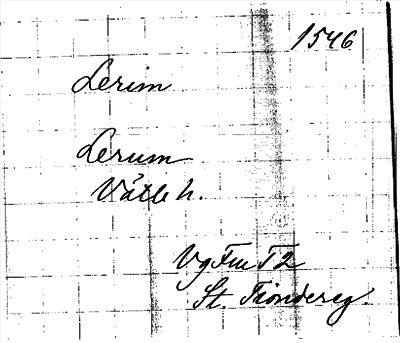 1546
Lerim
Lerum
Vätle h.
Vg Fm T 2
St. Tiondereg.